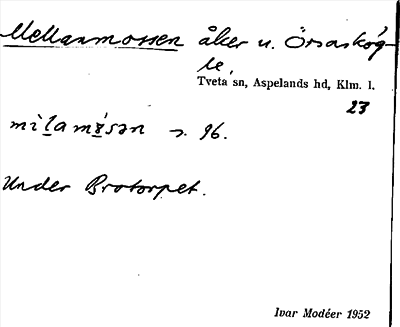 Mellanmossen åker u. Örsaskóg-
le,
Tveta sn, Aspelands hd, Klm. l.
23
mìlamɵ́sən s. 96.
Under Brotorpet.
Ivar Modéer 1952